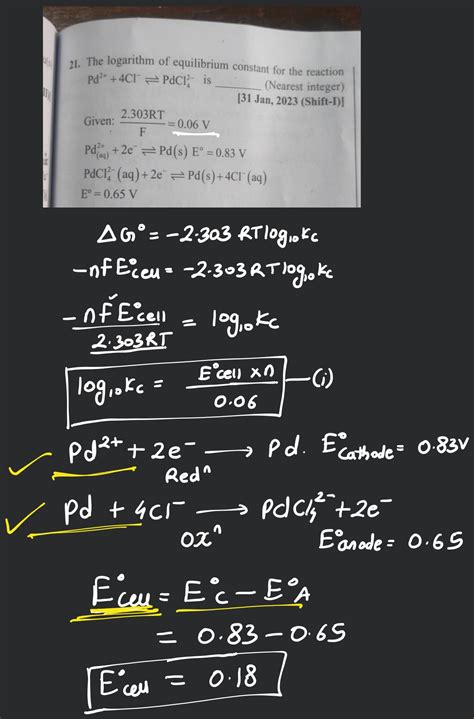 21. The logarithm of equilibrium constant for the reaction
Pd²⁺ + 4Cl⁻ ⇌ PdCl₄²⁻ is ________ (Nearest integer)
[31 Jan, 2023 (Shift-I)]
Given: 2.303RT/F = 0.06 V
Pd²⁺(aq) + 2e⁻ ⇌ Pd(s) E° = 0.83 V
PdCl₄²⁻ (aq) + 2e⁻ ⇌ Pd(s) + 4Cl⁻ (aq)
E° = 0.65 V
ΔG° = -2.303 RT log₁₀ Kc
-nFE°cell = -2.303 RT log₁₀ Kc
-nFE°cell/2.303RT = log₁₀ Kc
log₁₀ Kc = E°cell × n/0.06 —(i)
Pd²⁺ + 2e⁻ ⟶ Pd. E°cathode = 0.83V
Redⁿ
Pd + 4Cl⁻ ⟶ PdCl₄²⁻ + 2e⁻
oxⁿ E°anode = 0.65
E°cell = E°C - E°A
= 0.83 - 0.65
E°cell = 0.18